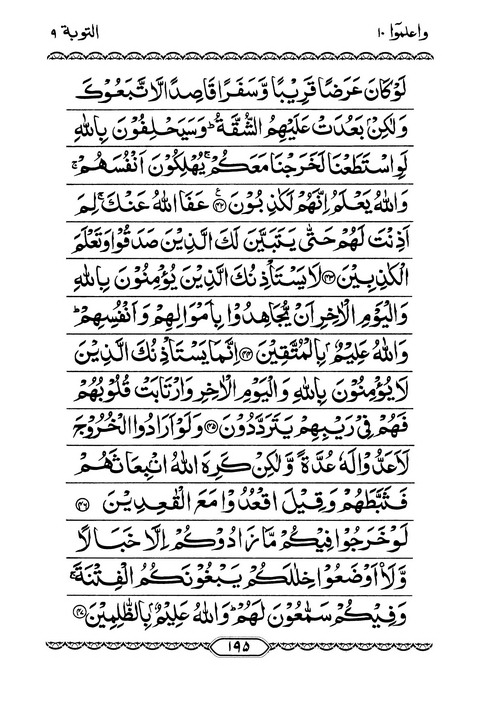 واعلموآ ١٠
التوبة ٩
لَوْ كَانَ عَرَضًا قَرِيْبًا وَّسَفَرًا قَاصِدًا لَّاتَّبَعُوْكَ
وَلٰكِنْۢ بَعُدَتْ عَلَيْهِمُ الشُّقَّةُ ؕ وَسَيَحْلِفُوْنَ بِاللّٰهِ
لَوِاسْتَطَعْنَا لَخَرَجْنَا مَعَكُمْ ۚ يُهْلِكُوْنَ اَنْفُسَهُمْ ۚ
وَاللّٰهُ يَعْلَمُ اِنَّهُمْ لَكٰذِبُوْنَ ﴿۴۲﴾ عَفَا اللّٰهُ عَنْكَ ۚ لِمَ
اَذِنْتَ لَهُمْ حَتّٰى يَتَبَيَّنَ لَكَ الَّذِيْنَ صَدَقُوْا وَتَعْلَمَ
الْكٰذِبِيْنَ ﴿۴۳﴾ لَا يَسْتَاْذِنُكَ الَّذِيْنَ يُؤْمِنُوْنَ بِاللّٰهِ
وَالْيَوْمِ الْاٰخِرِ اَنْ يُّجَاهِدُوْا بِاَمْوَالِهِمْ وَاَنْفُسِهِمْ ؕ
وَاللّٰهُ عَلِيْمٌۢ بِالْمُتَّقِيْنَ ﴿۴۴﴾ اِنَّمَا يَسْتَاْذِنُكَ الَّذِيْنَ
لَا يُؤْمِنُوْنَ بِاللّٰهِ وَالْيَوْمِ الْاٰخِرِ وَارْتَابَتْ قُلُوْبُهُمْ
فَهُمْ فِيْ رَيْبِهِمْ يَتَرَدَّدُوْنَ ﴿۴۵﴾ وَلَوْ اَرَادُوا الْخُرُوْجَ
لَاَعَدُّوْا لَهٗ عُدَّةً وَّلٰكِنْ كَرِهَ اللّٰهُ انْۢبِعَاثَهُمْ
فَثَبَّطَهُمْ وَقِيْلَ اقْعُدُوْا مَعَ الْقٰعِدِيْنَ ﴿۴۶﴾
لَوْ خَرَجُوْا فِيْكُمْ مَّا زَادُوْكُمْ اِلَّا خَبَالًا
وَّلَا۠اَوْضَعُوْا خِلٰلَكُمْ يَبْغُوْنَكُمُ الْفِتْنَةَ ۚ
وَفِيْكُمْ سَمّٰعُوْنَ لَهُمْ ؕ وَاللّٰهُ عَلِيْمٌۢ بِالظّٰلِمِيْنَ ﴿۴۷﴾
١٩٥